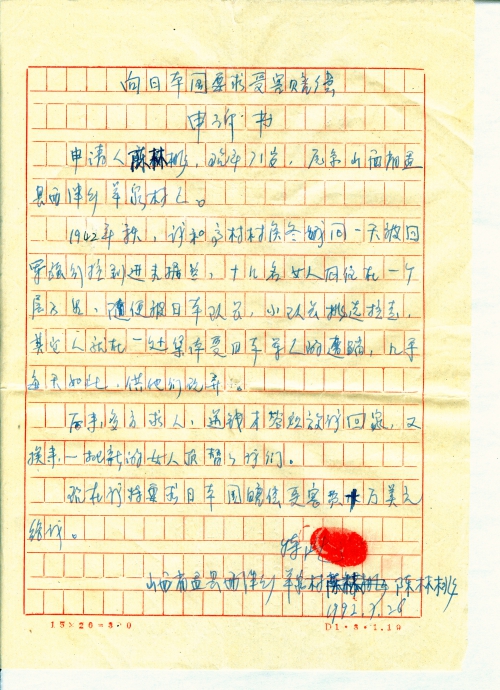 向日本国要求受害赔偿
申诉书
申请人陈林桃，现年71岁，原系山西省盂
县西潘乡羊泉村人。
1942年秋，我和高村村侯冬娥同一天被日
军强行拉到进圭据点，十几名女人同住在一个
屋子里，随便被日军队长，小队长挑选拉走，
其它人就在一处集体受日军军人的遭蹋，几乎
每天如此，供他们玩弄。
后来多方求人，送钱才答应放我回家，又
换来一批新的女人顶替了我们。
现在我特要求日本国赔偿受害费十万美元
给我。
特此
山西省盂县西潘乡羊泉村 陈林桃
1992.7.28
15×20=300